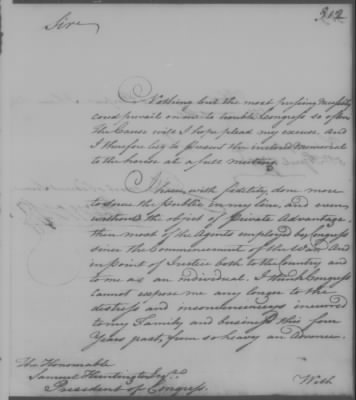 312
Sire
Nothing but the most pressing necessity
coud prevail on me to trouble Congress so often
The Cause will I hope plead my excuse. And
I therefore beg to present the inclosed Memorial
to the house at a full meeting.
I have, with fidelity, done more
to serve the public in my line, and even
without the object of Private Advantage
then most of the Agents employed by Congress
since the Commencement of the War. And
in point of Justice both to the Country and
to me as an individual. I think Congress
cannot expose me any longer to the
distress and inconveniencys incurred
to my Family and business this four
Years past, from so heavy an Advance.
The Honorable
Samuel Huntington Esqr.
President of Congress.
With